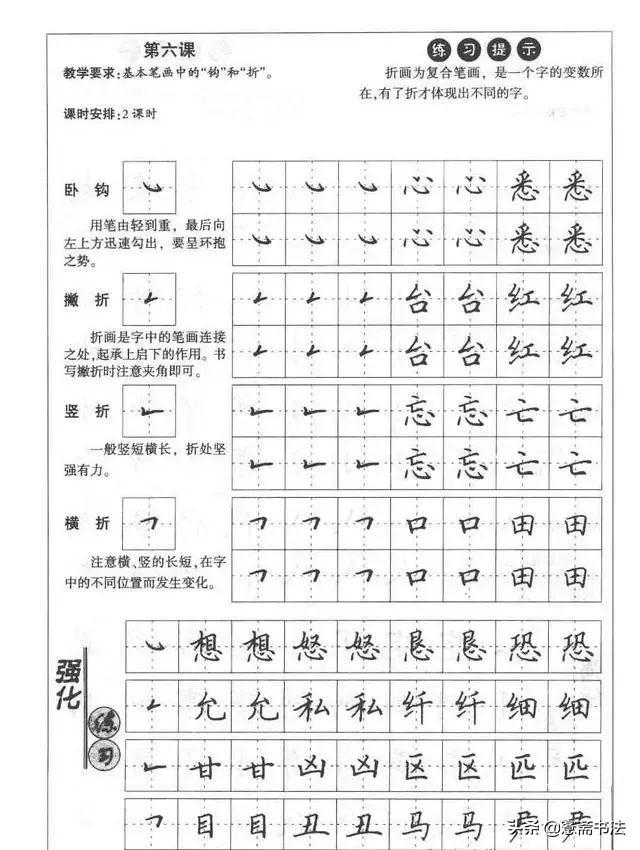 第六课
教学要求:基本笔画中的“钩”和“折”。
课时安排:2课时
练习提示
折画为复合笔画，是一个字的变数所
在,有了折才体现出不同的字。
卧钩
㇃ ㇃ ㇃ ㇃ 心 心 悉 悉
用笔由轻到重，最后向
左上方迅速勾出，要呈环抱
之势。
㇃ ㇃ ㇃ 心 心 悉 悉
撇折
㇜ ㇜ ㇜ ㇜ 台 台 红 红
折画是字中的笔画连接
之处,起承上启下的作用。书
写撇折时注意夹角即可。
㇜ ㇜ ㇜ 台 台 红 红
竖折
㇗ ㇗ ㇗ ㇗ 忘 忘 亡 亡
一般竖短横长，折处坚
强有力。
㇗ ㇗ ㇗ 忘 忘 亡 亡
横折
㇕ ㇕ ㇕ ㇕ 口 口 田 田
注意横、竖的长短,在字
中的不同位置而发生变化。
㇕ ㇕ ㇕ 口 口 田 田
强化
练习
㇃ 想 想 怒 怒 恳 恳 恐 恐
㇜ 允 允 私 私 纤 纤 细 细
㇗ 甘 甘 凶 凶 区 区 匹 匹
㇕ 目 目 丑 丑 马 马
头条@慧斋书法